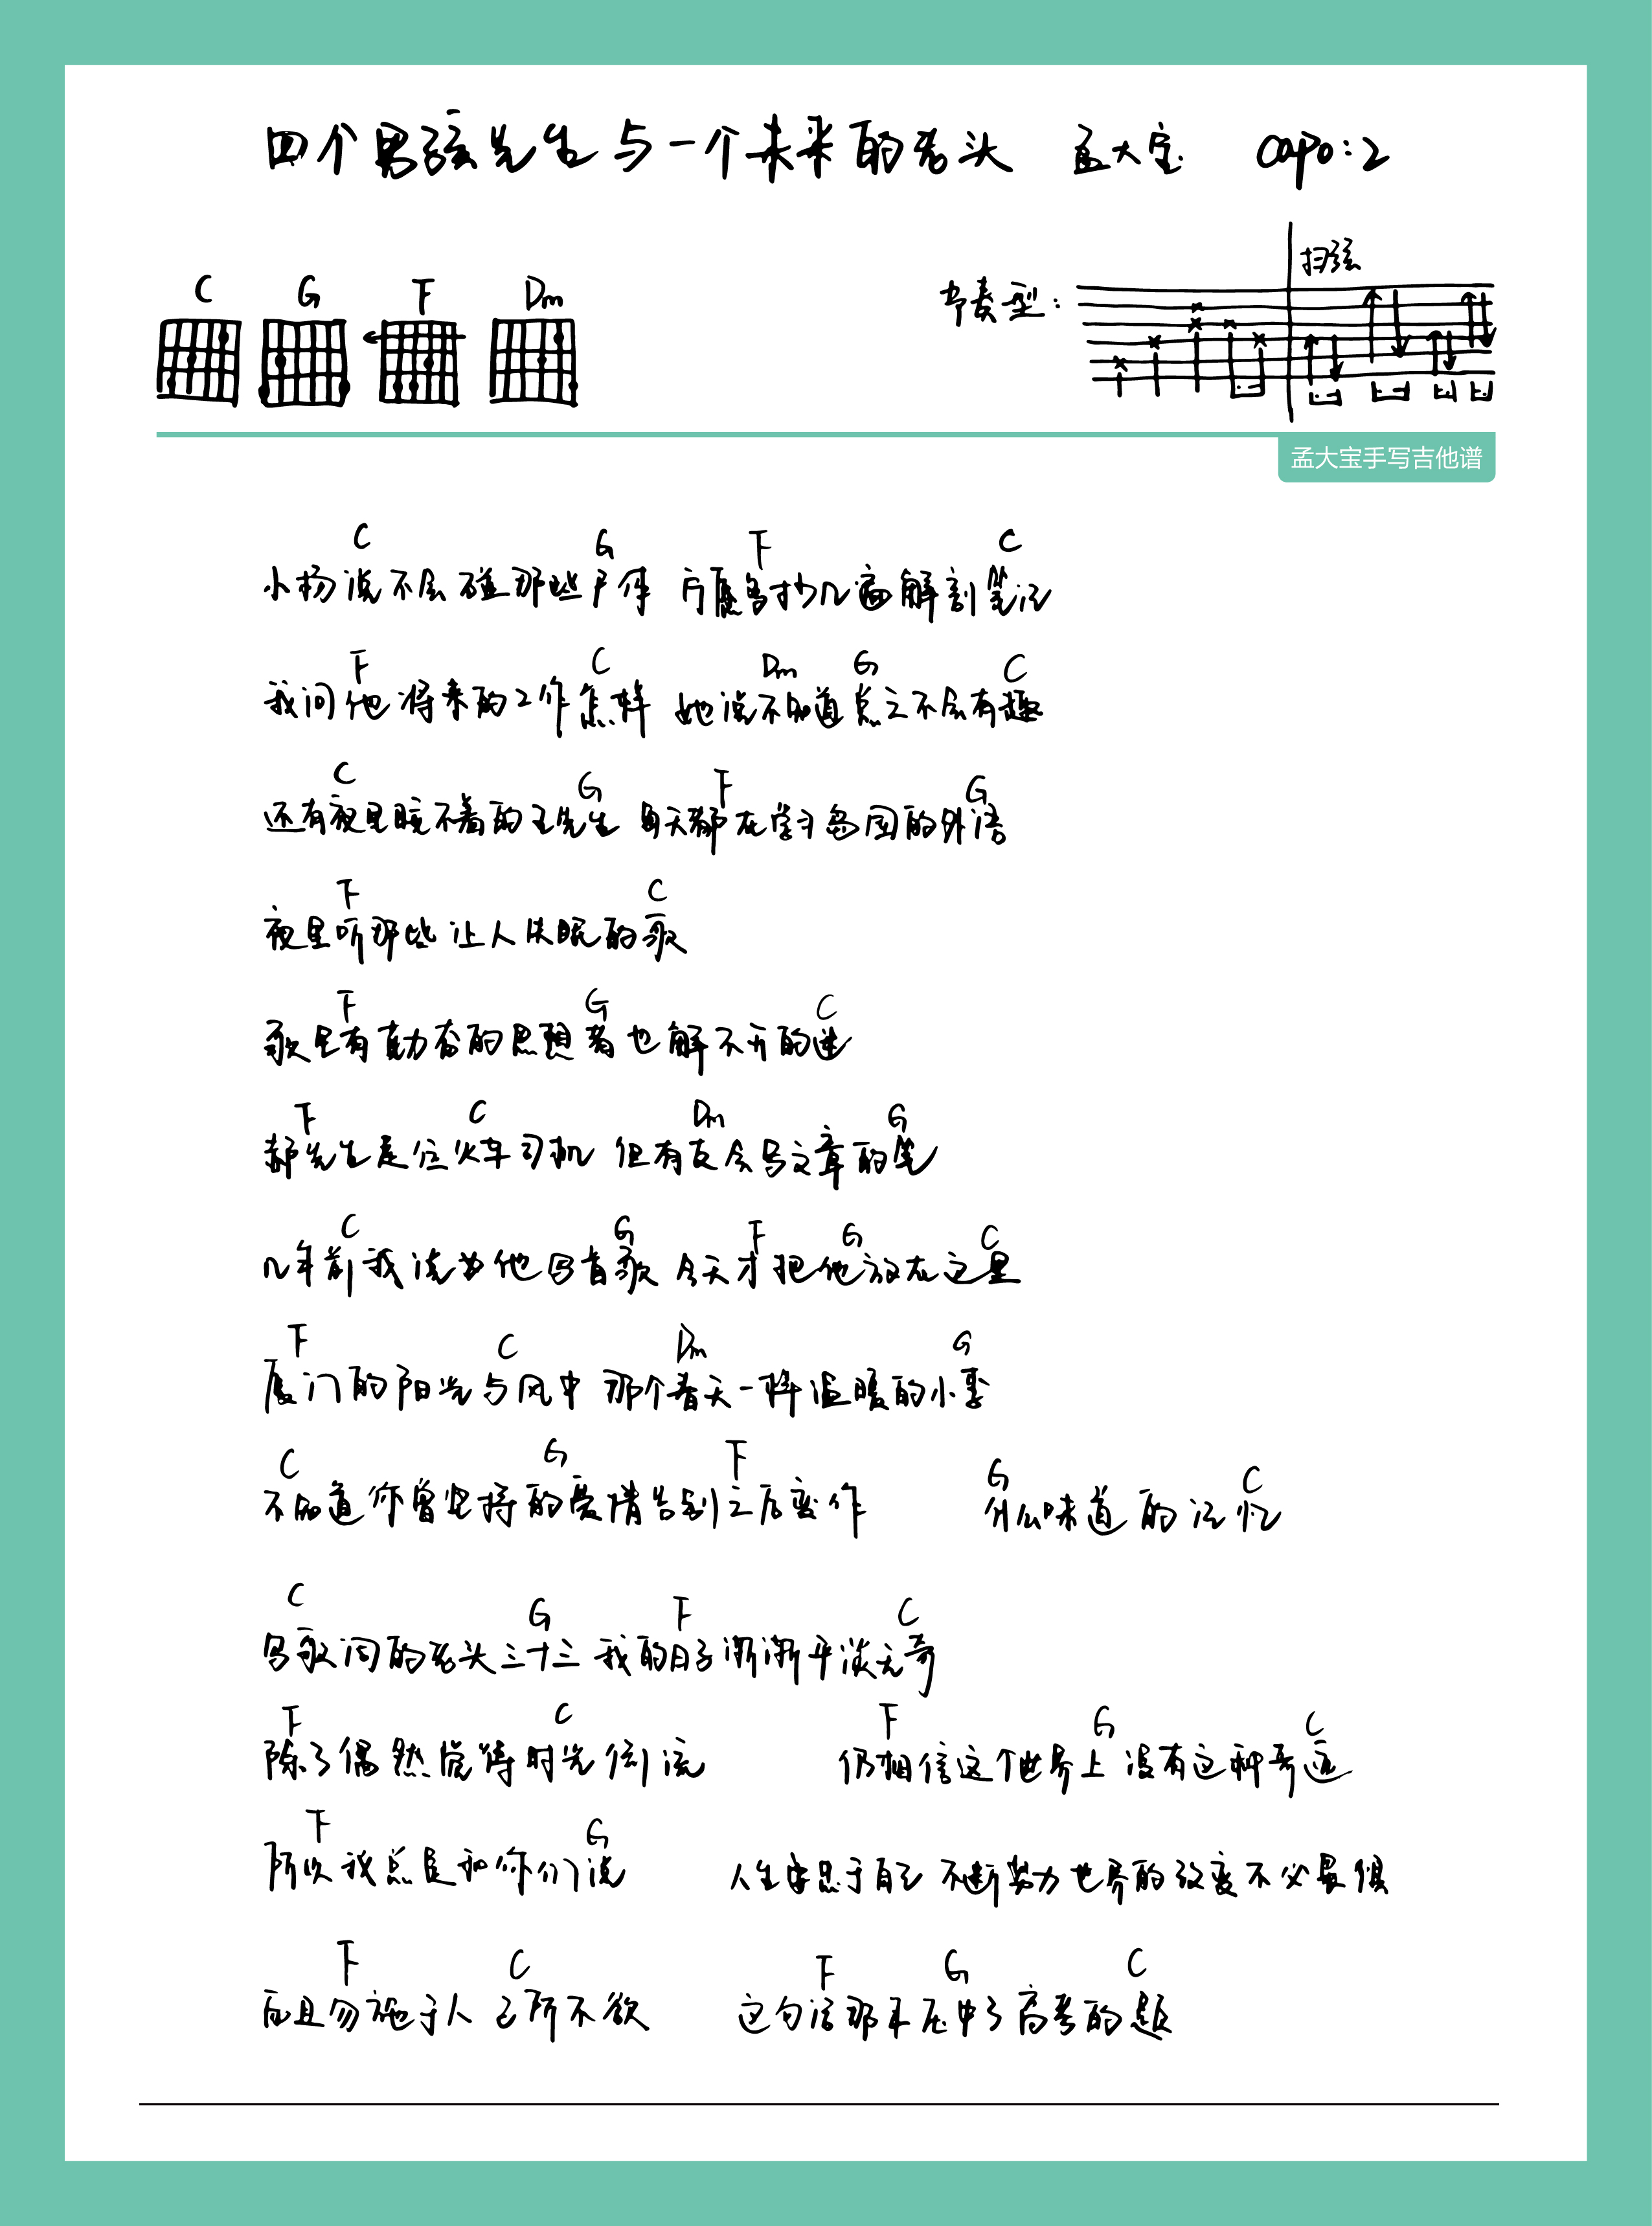 四个男孩先生与一个未来的老头 孟大宝 capo:2
扫弦
C G F Dm 节奏型:
孟大宝手写吉他谱
C G F C
小杨说不会碰那些尸体 宁愿多抄几遍解剖笔记
F C Dm G C
我问他将来的工作怎样 她说不知道总之不会有趣
C G F G
还有夜里睡不着的王先生 每天都在学习岛国的外语
F C
夜里听那些让人失眠的歌
F G C
歌里有勤奋的思想者也解不开的迷
F C Dm G
郝先生是位火车司机 但有支会写文章的笔
C G F G C
几年前我说为他写首歌 今天才把他放在这里
F C Dm G
厦门的阳光与风中 那个春天一样温暖的小李
C G F G C
不知道你曾坚持的爱情告别之后变作 什么味道的记忆
C G F C
写歌词的老头三十三 我的日子渐渐平淡无奇
F C F G C
除了偶然觉得时光倒流 仍相信这个世界上没有这种奇迹
F G
所以我总是和你们说 人生忠于自己 不断努力 世界的改变不必畏惧
F C F G C
而且勿施于人 己所不欲 这句话那年压中了高考的题